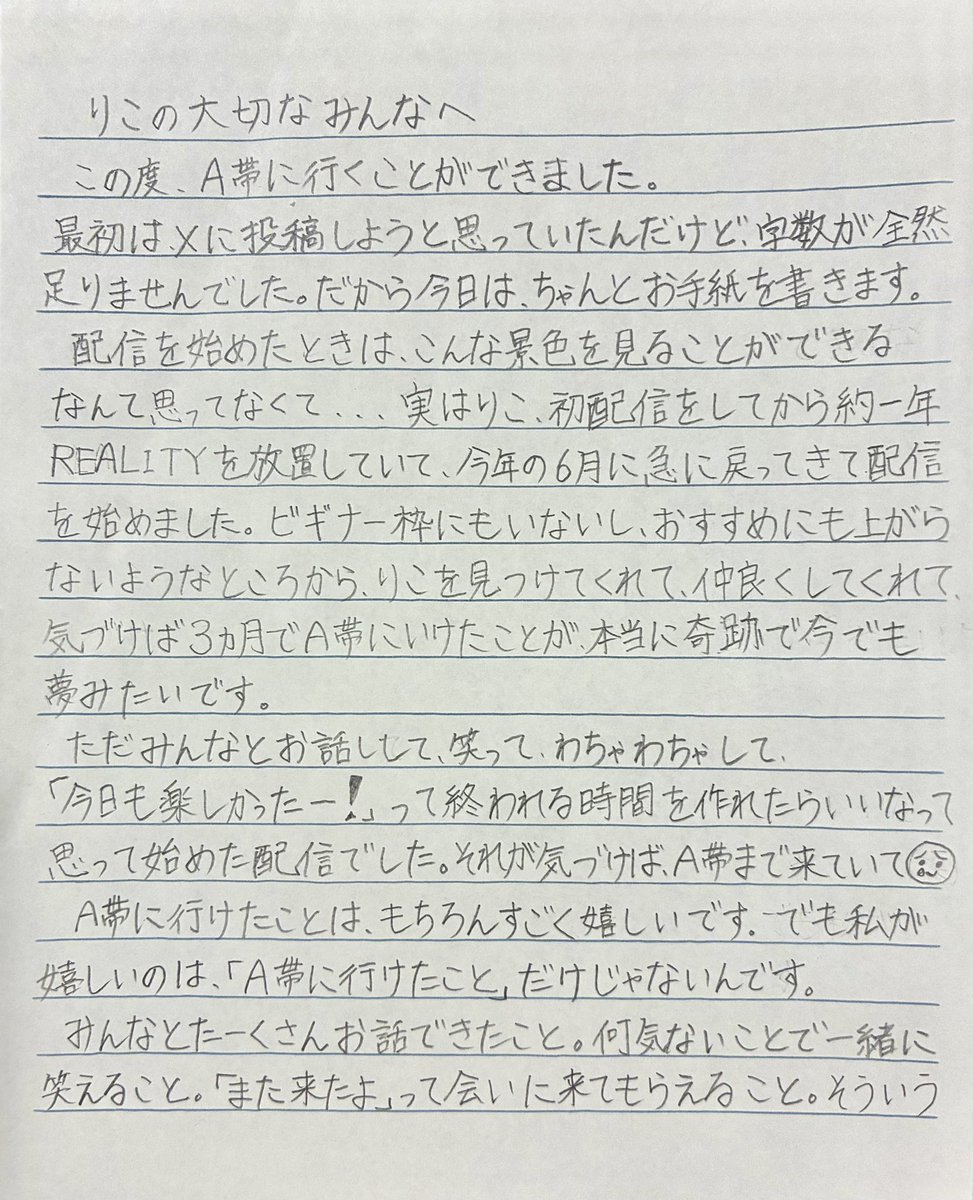 りこの大切なみんなへ
この度、A帯に行くことができました。
最初は、Xに投稿しようと思っていたんだけど、字数が全然
足りませんでした。だから今日は、ちゃんとお手紙を書きます。
配信を始めたときは、こんな景色を見ることができる
なんて思ってなくて...実はりこ、初配信をしてから約一年
REALITYを放置していて、今年の6月に急に戻ってきて配信
を始めました。ビギナー枠にもいないし、おすすめにも上がら
ないようなところから、りこを見つけてくれて、仲良くしてくれて、
気づけば3ヵ月でA帯にいけたことが、本当に奇跡で今でも
夢みたいです。
ただみんなとお話しして、笑って、わちゃわちゃして、
「今日も楽しかったー!」って終われる時間を作れたらいいなって
思って始めた配信でした。それが気づけば、A帯まで来ていて
A帯に行けたことは、もちろんすごく嬉しいです。でも私が
嬉しいのは、「A帯に行けたこと」だけじゃないんです。
みんなとたーくさんお話できたこと。何気ないことで一緒に
笑えること。「また来たよ」って会いに来てもらえること。そういう